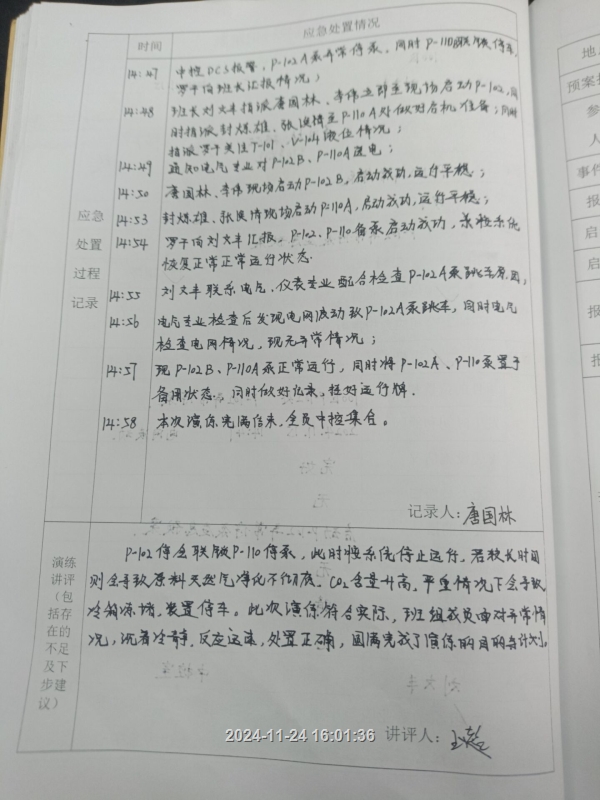 应急处置情况
时间
14:47 中控DCS报警，P-102A泵异常停泵，同时P-110联锁停车，
罗于伯班长汇报情况；
14:48 班长刘文丰指派唐国林、李伟立即至现场启动P-102，同
时指派封炼雄、张 至P-110A处做好启机准备；同时
指派罗于 关注T-101、V-104液位情况；
14:49 通知电气专业对P-102B、P-110A送电；
14:50 唐国林、李伟现场启动P-102B，启动成功，运行平稳；
14:53 封炼雄、张 现场启动P-110A，启动成功，运行平稳；
14:54 罗于向刘文丰汇报，P-102、P-110备泵启动成功，系统
恢复正常正常运行状态。
应急
处置
过程
记录
14:55 刘文丰联系电气、仪表专业配合检查P-102A泵跳车原因，
14:56 电气专业检查后发现电网波动致P-102A泵跳车，同时电气
检查电网情况，现无异常情况；
14:57 现P-102B、P-110A泵正常运行，同时将P-102A、P-110泵置于
备用状态。同时做好记录，挂好运行牌．
14:58 本次演练完满结束，全员中控集合。
记录人：唐国林
演练
讲评
（包
括存
在的
不足
及下
步建
议）
P-102停会联锁P-110停泵，此时 系统停止运行，若较长时间
则会导致原料天然气净化不彻底，CO₂含量升高，严重情况下会导致
冷箱冻堵，装置停车。此次演练符合实际，班组成员面对异常情
况，沉着冷静，反应迅速，处置正确，圆满完成了演练的目的与计划。
讲评人：
2024-11-24 16:01:36
地
预案
参
人
事件
报
启
启
报
报